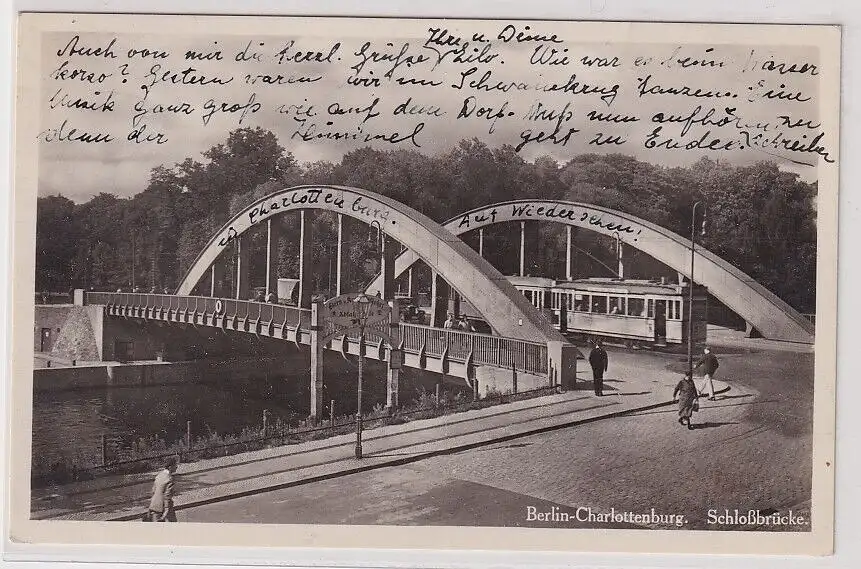 Ihre u. Deine
Auch von mir die herzl. Grüße Eilv. Wie war es beim Wasser
korso? Gestern waren wir im Schwanenkrug tanzen. Eine
Musik ganz groß wie auf dem Dorf. Muß nun aufhören zu
denn der Himmel geht zu Ende. Schreiben
Charlottenburg.
Auf Wiedersehen!
Berlin-Charlottenburg. Schloßbrücke.